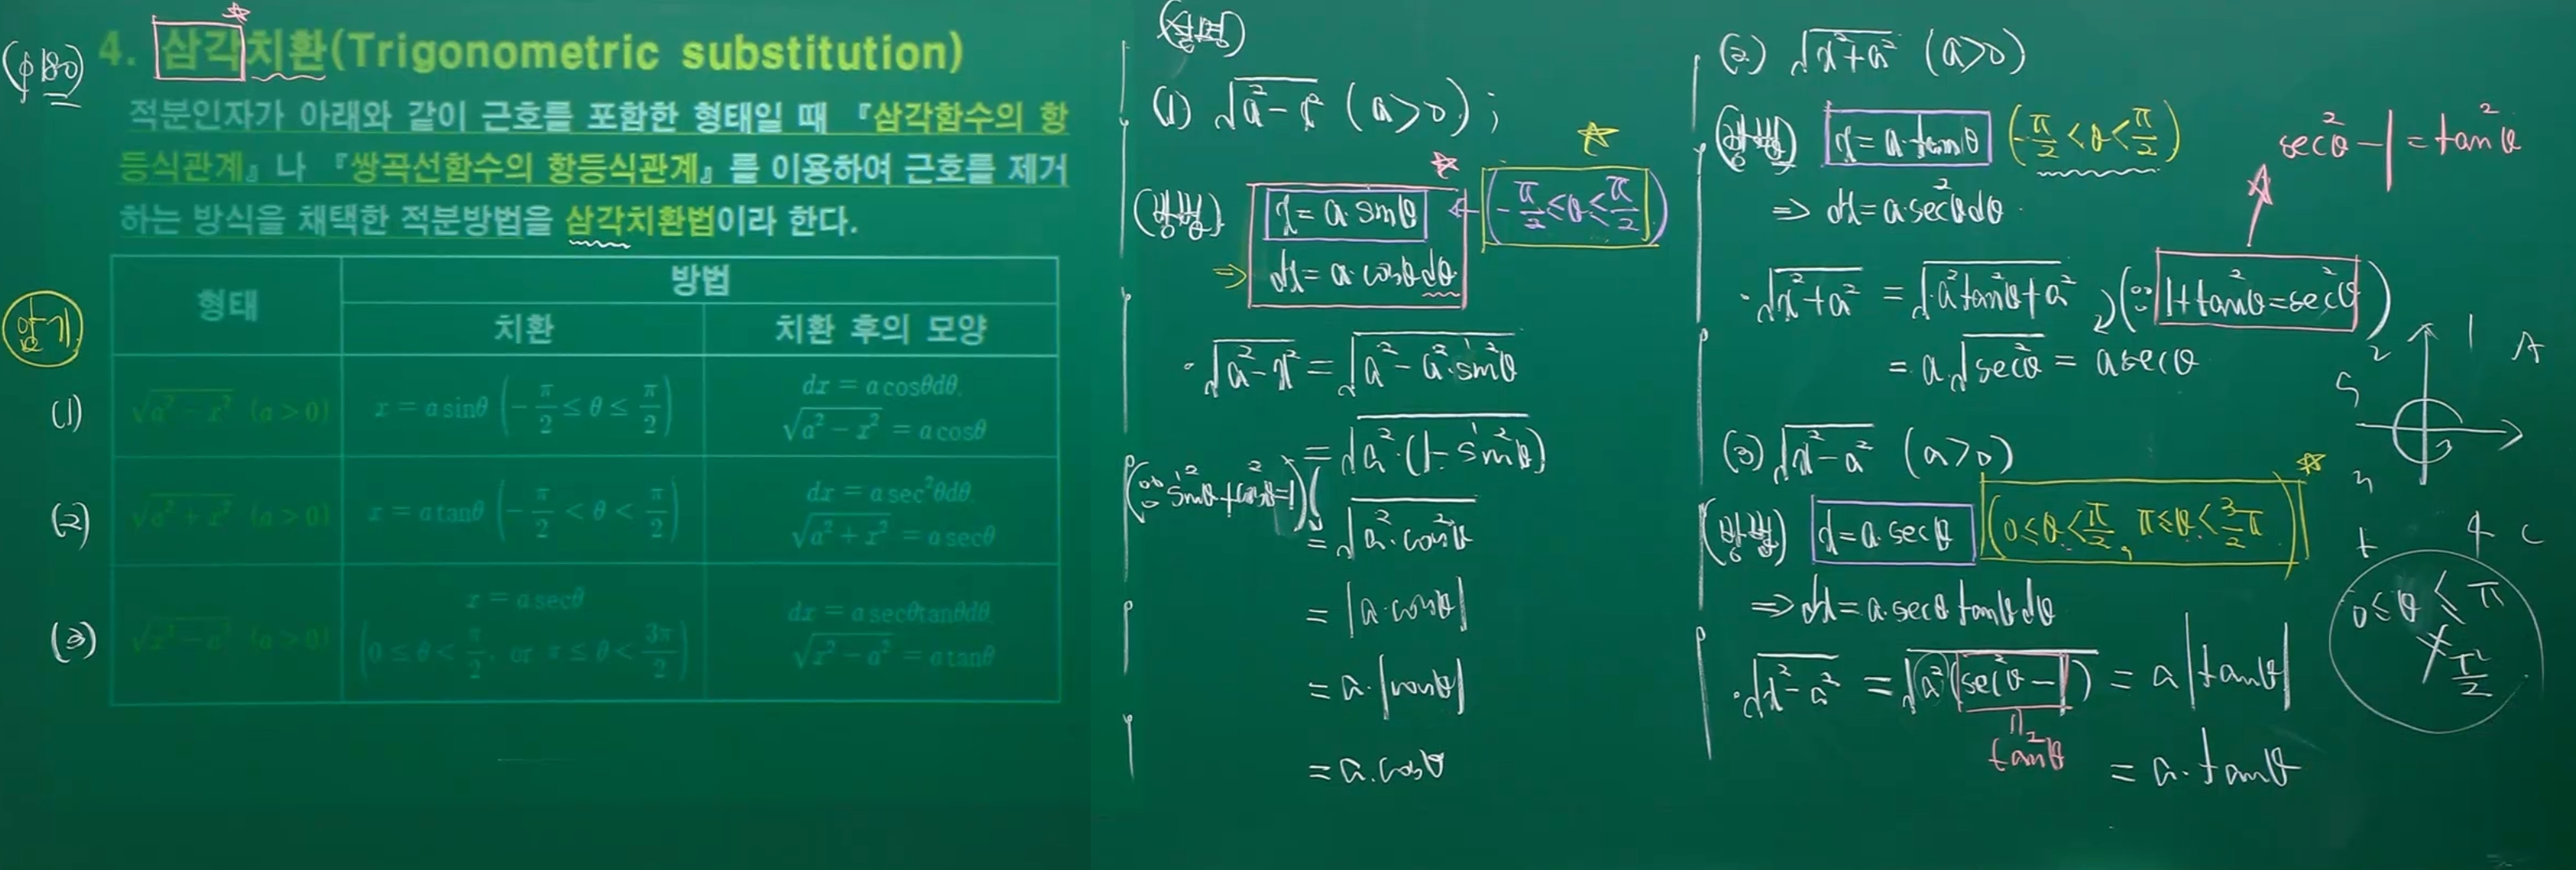 (p 180)
4. 삼각치환(Trigonometric substitution)
적분인자가 아래와 같이 근호를 포함한 형태일 때 『삼각함수의 항
등식관계』나 『쌍곡선함수의 항등식관계』를 이용하여 근호를 제거
하는 방식을 채택한 적분방법을 삼각치환법이라 한다.
암기
형태
방법
치환
치환 후의 모양
(1)
√(a² − x²) (a > 0)
x = a sinθ (−π/2 ≤ θ ≤ π/2)
dx = a cosθdθ,
√(a² − x²) = a cosθ
(2)
√(a² + x²) (a > 0)
x = a tanθ (−π/2 < θ < π/2)
dx = a sec²θdθ,
√(a² + x²) = a secθ
(3)
√(x² − a²) (a > 0)
x = a secθ
(0 ≤ θ < π/2, or π ≤ θ < 3π/2)
dx = a secθtanθdθ
√(x² − a²) = a tanθ
(설명)
(1) √(a² − x²) (a > 0) ;
(방법) x = a·sinθ (−π/2 ≤ θ ≤ π/2)
⇒ dx = a·cosθdθ
·√(a² − x²) = √(a² − a²·sin²θ)
= √(a²·(1 − sin²θ))
(∵ sin²θ + cos²θ = 1)
= √(a²·cos²θ)
= |a·cosθ|
= a·|cosθ|
= a·cosθ
(2) √(x² + a²) (a > 0)
(방법) x = a·tanθ (−π/2 < θ < π/2)
sec²θ − 1 = tan²θ
⇒ dx = a·sec²θdθ
·√(x² + a²) = √(a²tan²θ + a²) (∵ 1 + tan²θ = sec²θ)
= a√(sec²θ) = a secθ
(3) √(x² − a²) (a > 0)
(방법) x = a·secθ (0 ≤ θ < π/2, π ≤ θ < 3/2 π)
⇒ dx = a·secθ tanθdθ
·√(x² − a²) = √(a²(sec²θ − 1)) = a|tanθ|
tan²θ
= a·tanθ
2 1 A
S
3
t 4 C
0 ≤ θ ≤ π
≠ π/2